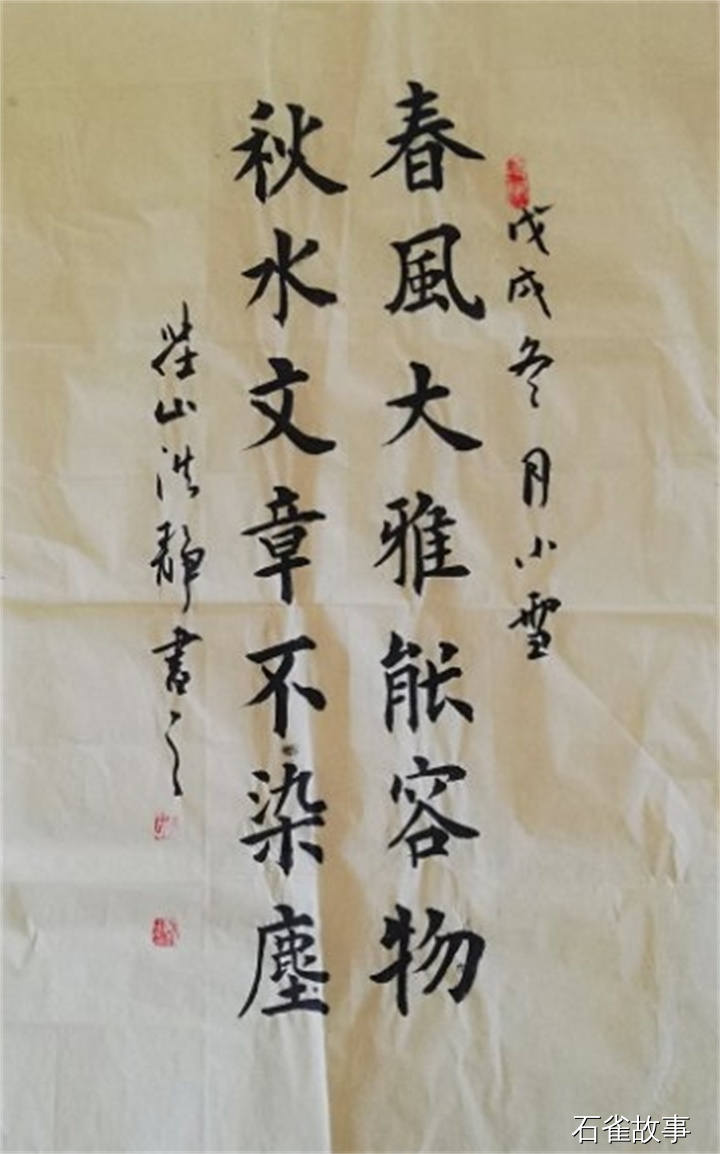 戊戌冬月小雪
春風大雅能容物
秋水文章不染塵
山洪靜書之
石雀故事